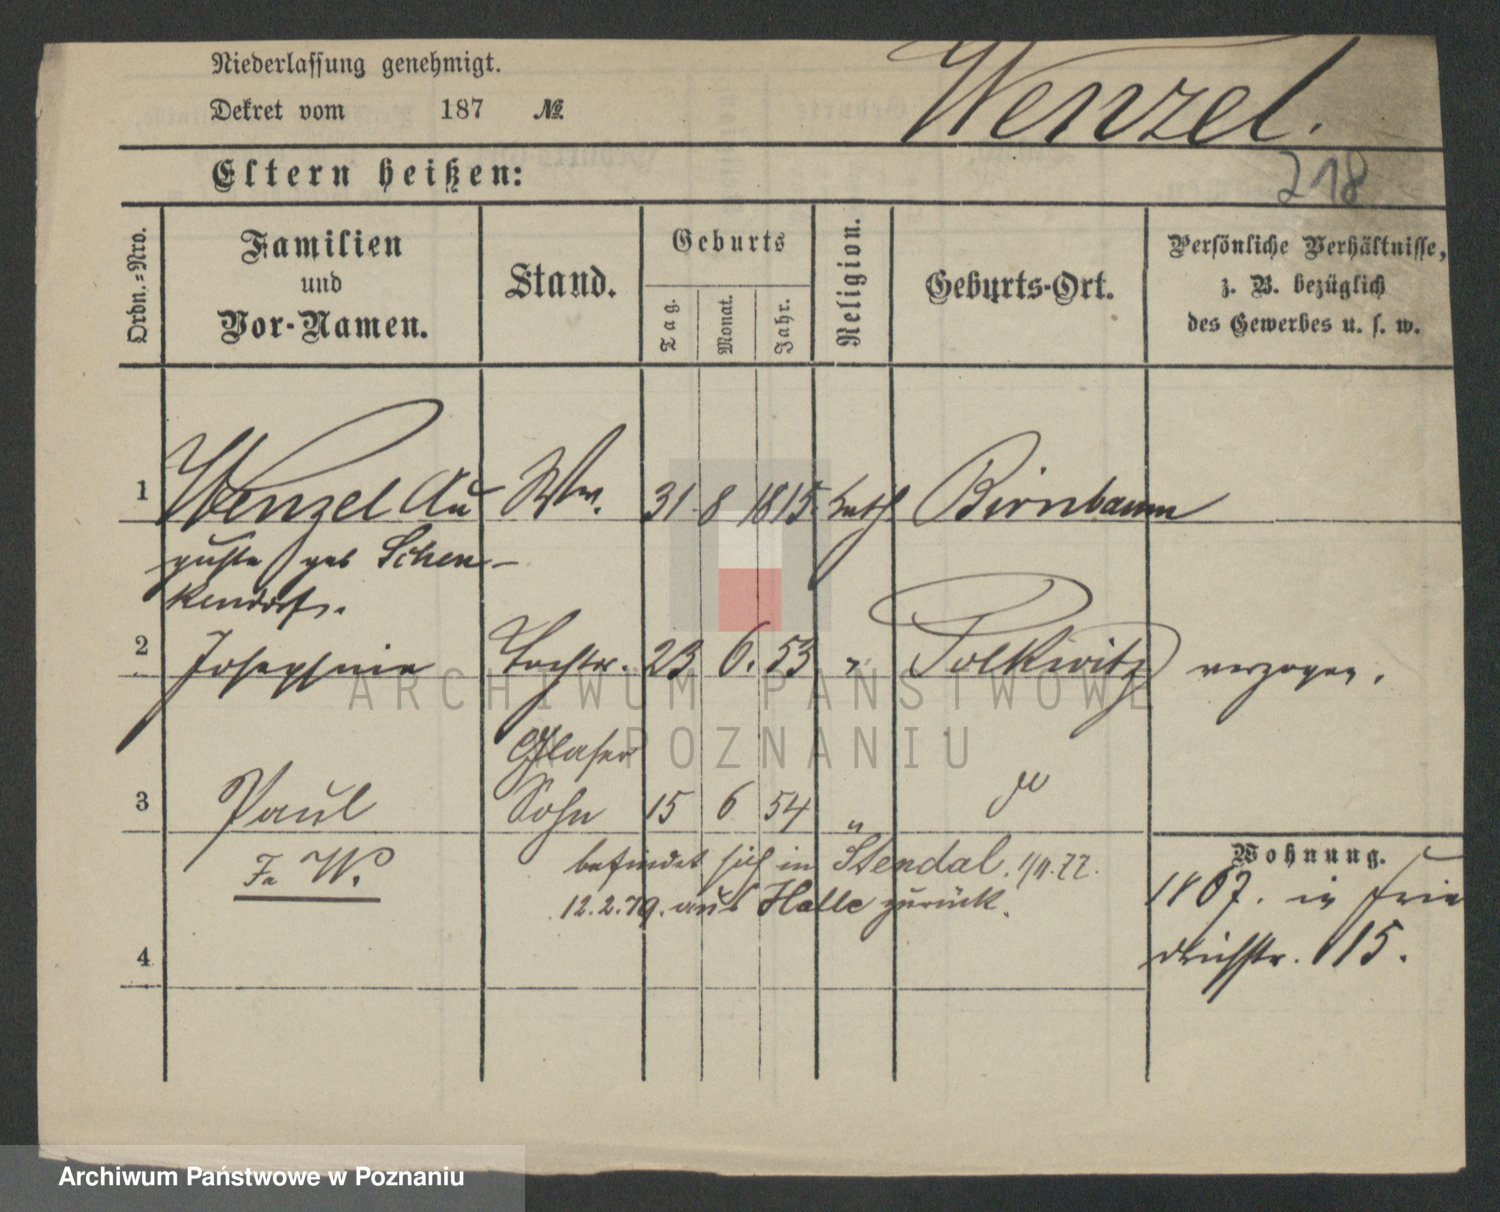 Niederlassung genehmigt.
Dekret vom 187 №
Wenzel.
218
Eltern heißen:
Ordn.-Nro.
Familien und Vor-Namen.
Stand.
Geburts
Tag. Monat. Jahr.
Religion.
Geburts-Ort.
Persönliche Verhältnisse,
z. B. bezüglich
des Gewerbes u. s. w.
1 Wenzel Au Ww. 31 8 1815 kath Birnbaum
guste geb Schen-
kendorf.
2 Josephine Tochter. 23 6. 53 " Polkwitz verzogen.
Glaser
3 Paul Sohn 15 6 54 " do
W. befindet sich in Stendal. 1/11.77.
12.2.79. aus Halle zurück.
Wohnung.
1867. in Frie
drichstr. 15.
4
ARCHIWUM PAŃSTWOWE
W POZNANIU
Archiwum Państwowe w Poznaniu